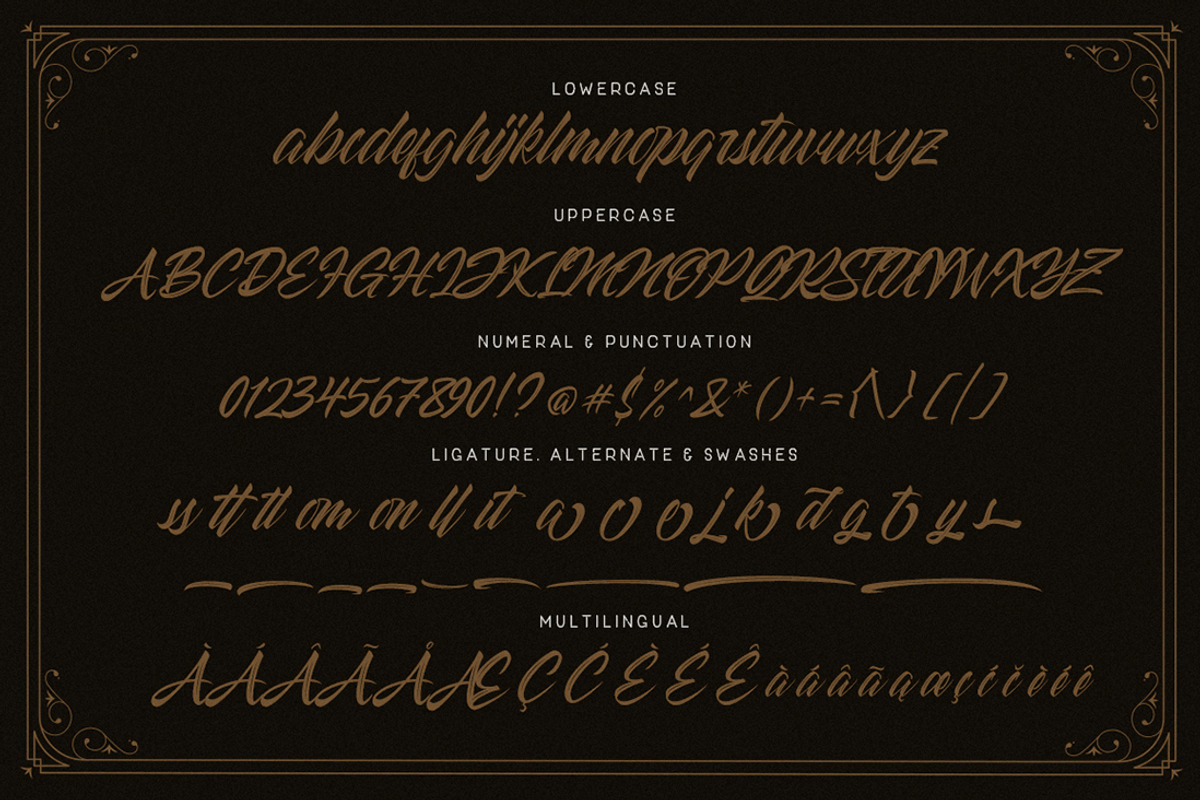 LOWERCASE
abcdefghijklmnopqrstuvwxyz
UPPERCASE
ABCDEFGHIJKLMNOPQRSTUVWXYZ
NUMERAL & PUNCTUATION
01234567890!?@#$%^&*()+={\}[/]
LIGATURE. ALTERNATE & SWASHES
ss tt tl om on ll it a o o j k d g t y s
MULTILINGUAL
ÀÁÂÃÅÆÇĆÈÉÊàáâãąæçćčèéê